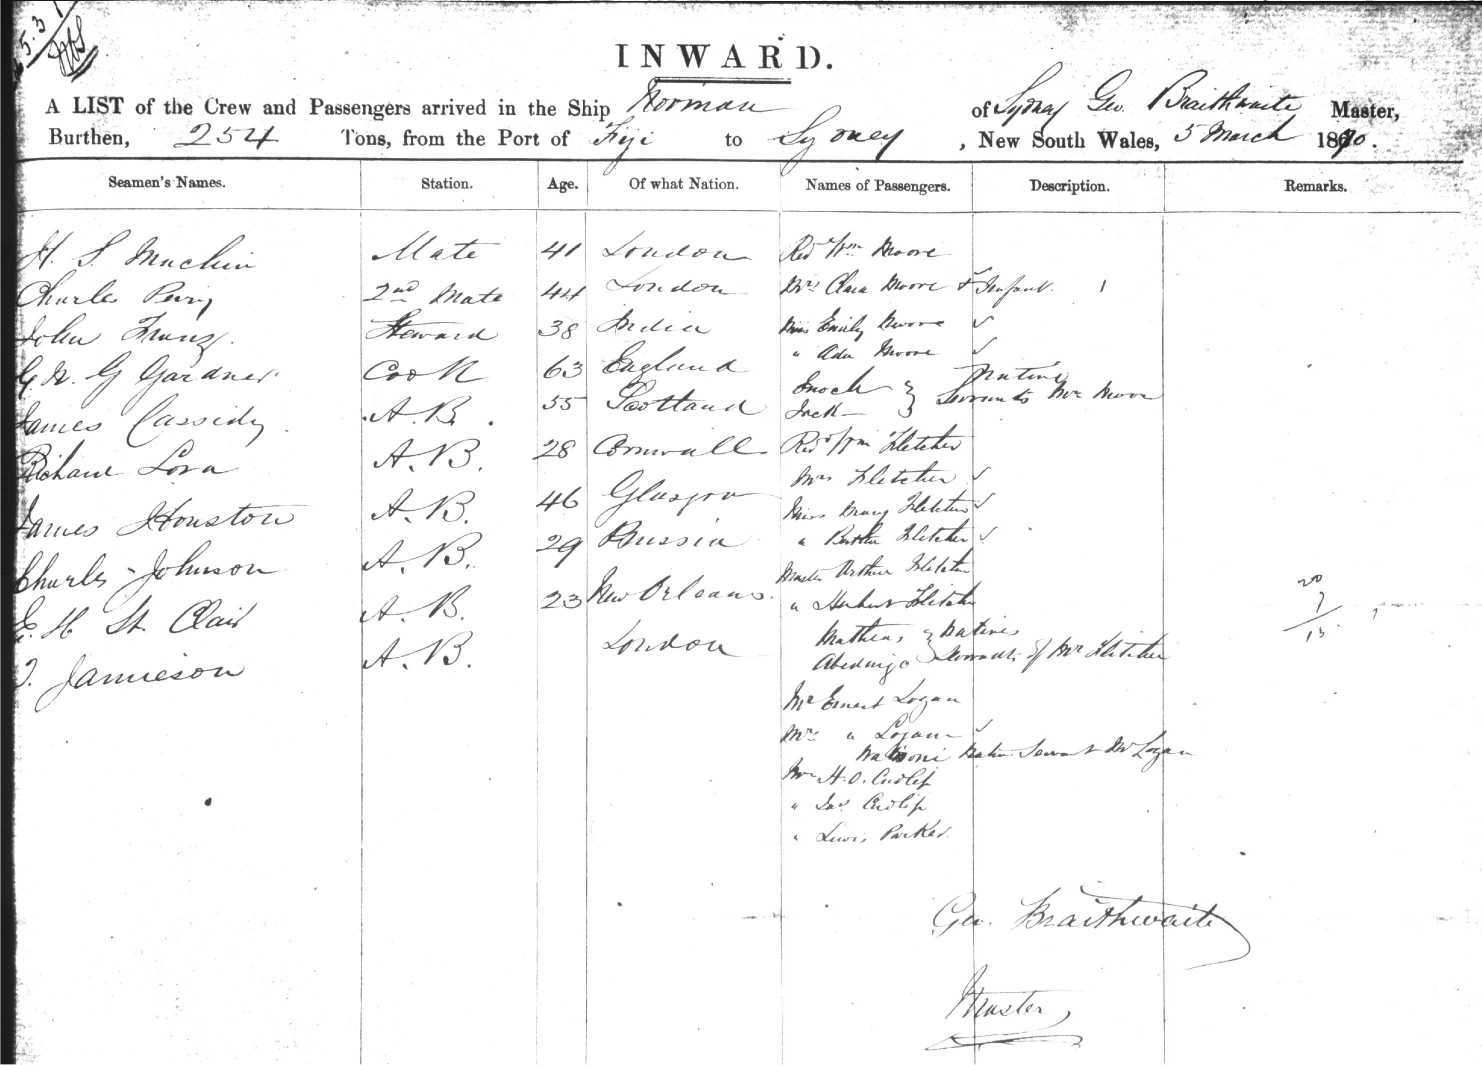 5.3
INWARD.
A LIST of the Crew and Passengers arrived in the Ship Norman of Sydney Geo. Braithwaite Master,
Burthen, 254 Tons, from the Port of Fiji to Sydney, New South Wales, 5 March 1870.
Seamen's Names. Station. Age. Of what Nation. Names of Passengers. Description. Remarks.
H. S. Machin Mate 41 London Revd Wm Moore
Charles Perry 2nd Mate 44 London Mrs Clara Moore & Infant 1
John Franz. Steward 38 India Miss Emily Moore ✓
" Ada Moore ✓
G. W. G Gardner Cook 63 England Enoch } Native
James Cassidy A.B. 55 Scotland Jack } Servants Mr Moore
Richard A.B. 28 Cornwall Revd Wm Fletcher
Mrs Fletcher ✓
James Houston A.B. 46 Glasgow Miss Mary Fletcher ✓
Charles Johnson A.B. 29 Russia " Bertha Fletcher ✓
Master Arthur Fletcher
E. H St. Clair A.B. 23 New Orleans. " Herbert Fletcher
20
7
13
Mathias } Natives
J. Jamieson A.B. London Abednigo } Servants of Mr Fletcher
Mr Ernest Logan
Mrs " Logan ✓
Native Servant Mr Logan
Mr H. O. Cudlip
" Jas Cudlip
" Lewis Parker.
Geo. Braithwaite
Master